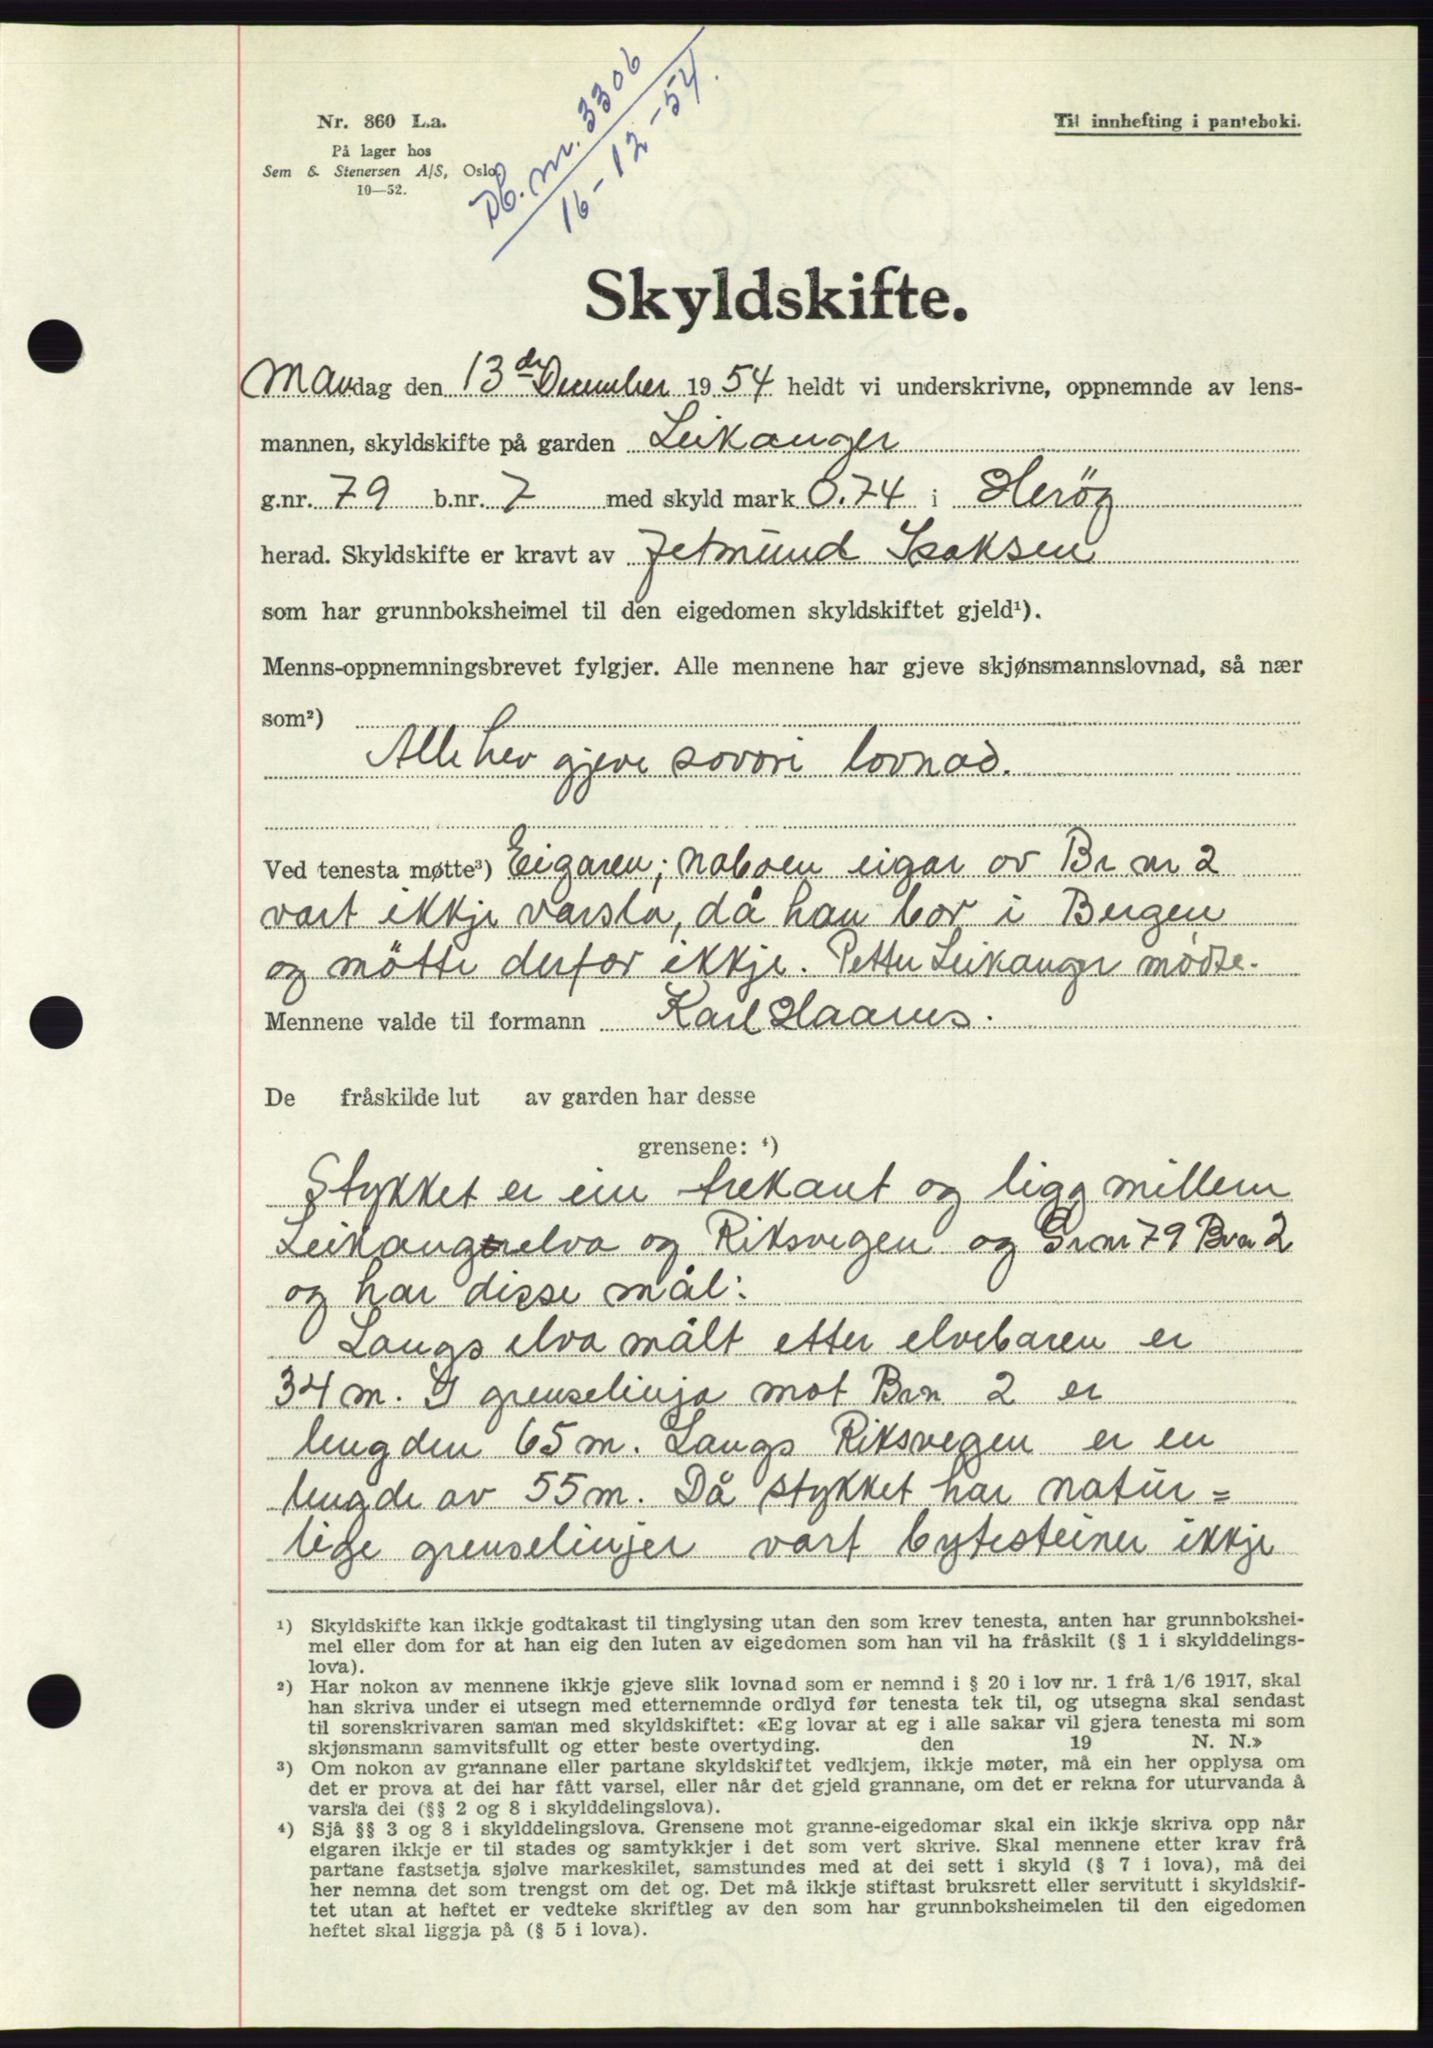 Nr. 860 L.a.
På lager hos
Sem & Stenersen A/S, Oslo.
10—52.
Db. nr. 3306
16-12-54.
Til innhefting i panteboki.
Skyldskifte.
Mandag den 13de December 1954 heldt vi underskrivne, oppnemnde av lens-
mannen, skyldskifte på garden Leikanger
g.nr. 79 b.nr. 7 med skyld mark 0.74 i Herøy
herad. Skyldskifte er kravt av Jetmund Isaksen
som har grunnboksheimel til den eigedomen skyldskiftet gjeld¹).
Menns-oppnemningsbrevet fylgjer. Alle mennene har gjeve skjønsmannslovnad, så nær
som²)
Alle hev gjeve sovori lovnad.
Ved tenesta møtte³) Eigaren; naboen eigar av Br nr 2
vart ikkje varsla, då han bor i Bergen
og mötte derfor ikkje. Petter Leikanger mødte.
Mennene valde til formann Karl Haanes.
De fråskilde lut av garden har desse
grensene: ⁴)
Stykket er ein trekant og ligg millem
Leikangerelva og Riksvegen og Grnr 79 Brn 2
og har disse mål:
Langs elva målt etter elvebaren er
34 m. I grenselinja mot Brn 2 er
lengden 65 m. Langs Riksvegen er en
lengde av 55 m. Då stykket har natur=
lige grenselinjer vart bytesteiner ikkje
¹) Skyldskifte kan ikkje godtakast til tinglysing utan den som krev tenesta, anten har grunnbokshei-
mel eller dom for at han eig den luten av eigedomen som han vil ha fråskilt (§ 1 i skylddelings-
lova).
²) Har nokon av mennene ikkje gjeve slik lovnad som er nemnd i § 20 i lov nr. 1 frå 1/6 1917, skal
han skriva under ei utsegn med etternemnde ordlyd før tenesta tek til, og utsegna skal sendast
til sorenskrivaren saman med skyldskiftet: «Eg lovar at eg i alle sakar vil gjera tenesta mi som
skjønsmann samvitsfullt og etter beste overtyding. den 19 N. N.»
³) Om nokon av grannane eller partane skyldskiftet vedkjem, ikkje møter, må ein her opplysa om
det er prova at dei har fått varsel, eller når det gjeld grannane, om det er rekna for uturvanda å
varsla dei (§§ 2 og 8 i skylddelingslova).
⁴) Sjå §§ 3 og 8 i skylddelingslova. Grensene mot granne-eigedomar skal ein ikkje skriva opp når
eigaren ikkje er til stades og samtykkjer i det som vert skrive. Skal mennene etter krav frå
partane fastsetja sjølve markeskilet, samstundes med at dei sett i skyld (§ 7 i lova), må dei
her nemna det som trengst om det og. Det må ikkje stiftast bruksrett eller servitutt i skyldskif-
tet utan at heftet er vedteke skriftleg av den som har grunnboksheimelen til den eigedomen
heftet skal liggja på (§ 5 i lova).